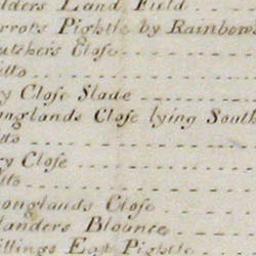 lders Land Field
rrots Pightle by Rainbows
utchers Close
itto
y Close Slade
onglands Close lying South
tto
ry Close
tto
onglands Close
landers Blounce
illings East Pightle